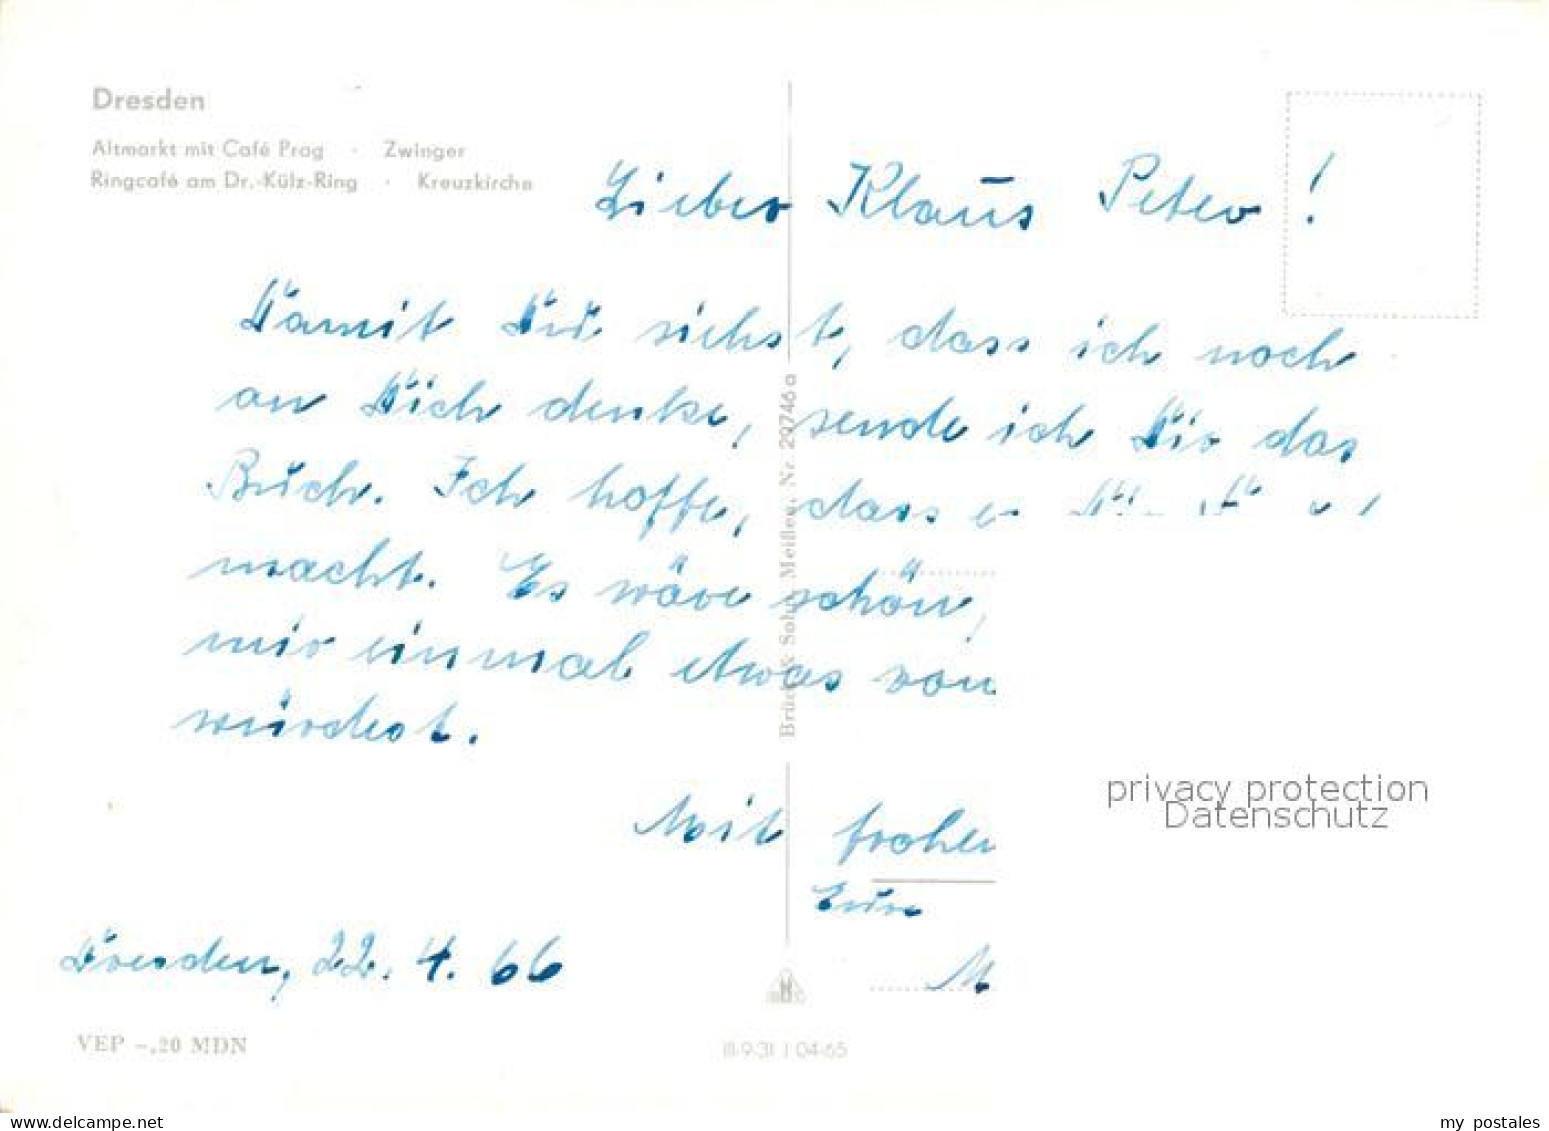 Dresden
Altmarkt mit Café Prag · Zwinger
Ringcafé am Dr.-Külz-Ring · Kreuzkirche
Lieber Klaus Peter!
Damit Du siehst, dass ich noch
an Dich denke, sende ich Dir das
Buch. Ich hoffe, dass es
macht. Es wäre schön,
mir einmal etwas von
würdest.
Mit frohen
Eure
M
Dresden, 22. 4. 66
Brück & Sohn, Meißen, Nr. 29746 a
VEP -,20 MDN
III-9-31 J 04-65
privacy protection
Datenschutz
www.delcampe.net
my_postales